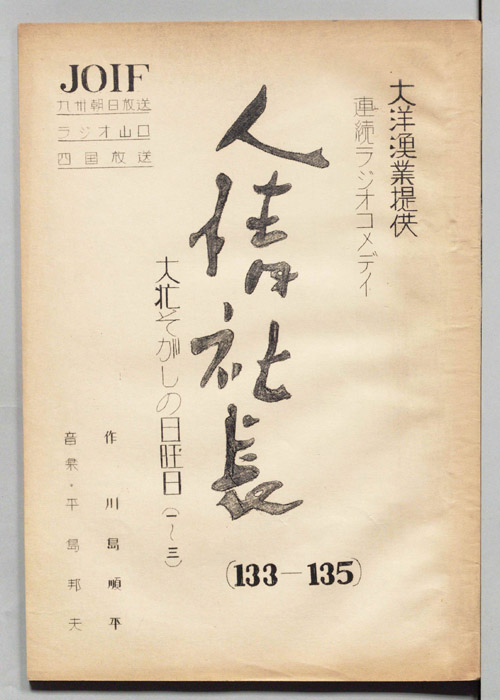 大洋漁業提供
連続ラジオコメデイ
人情社長
(133—135)
大忙そがしの日旺日(一~三)
作 川島順平
音楽・平島邦夫
JOIF
九州朝日放送
ラジオ山口
四国放送